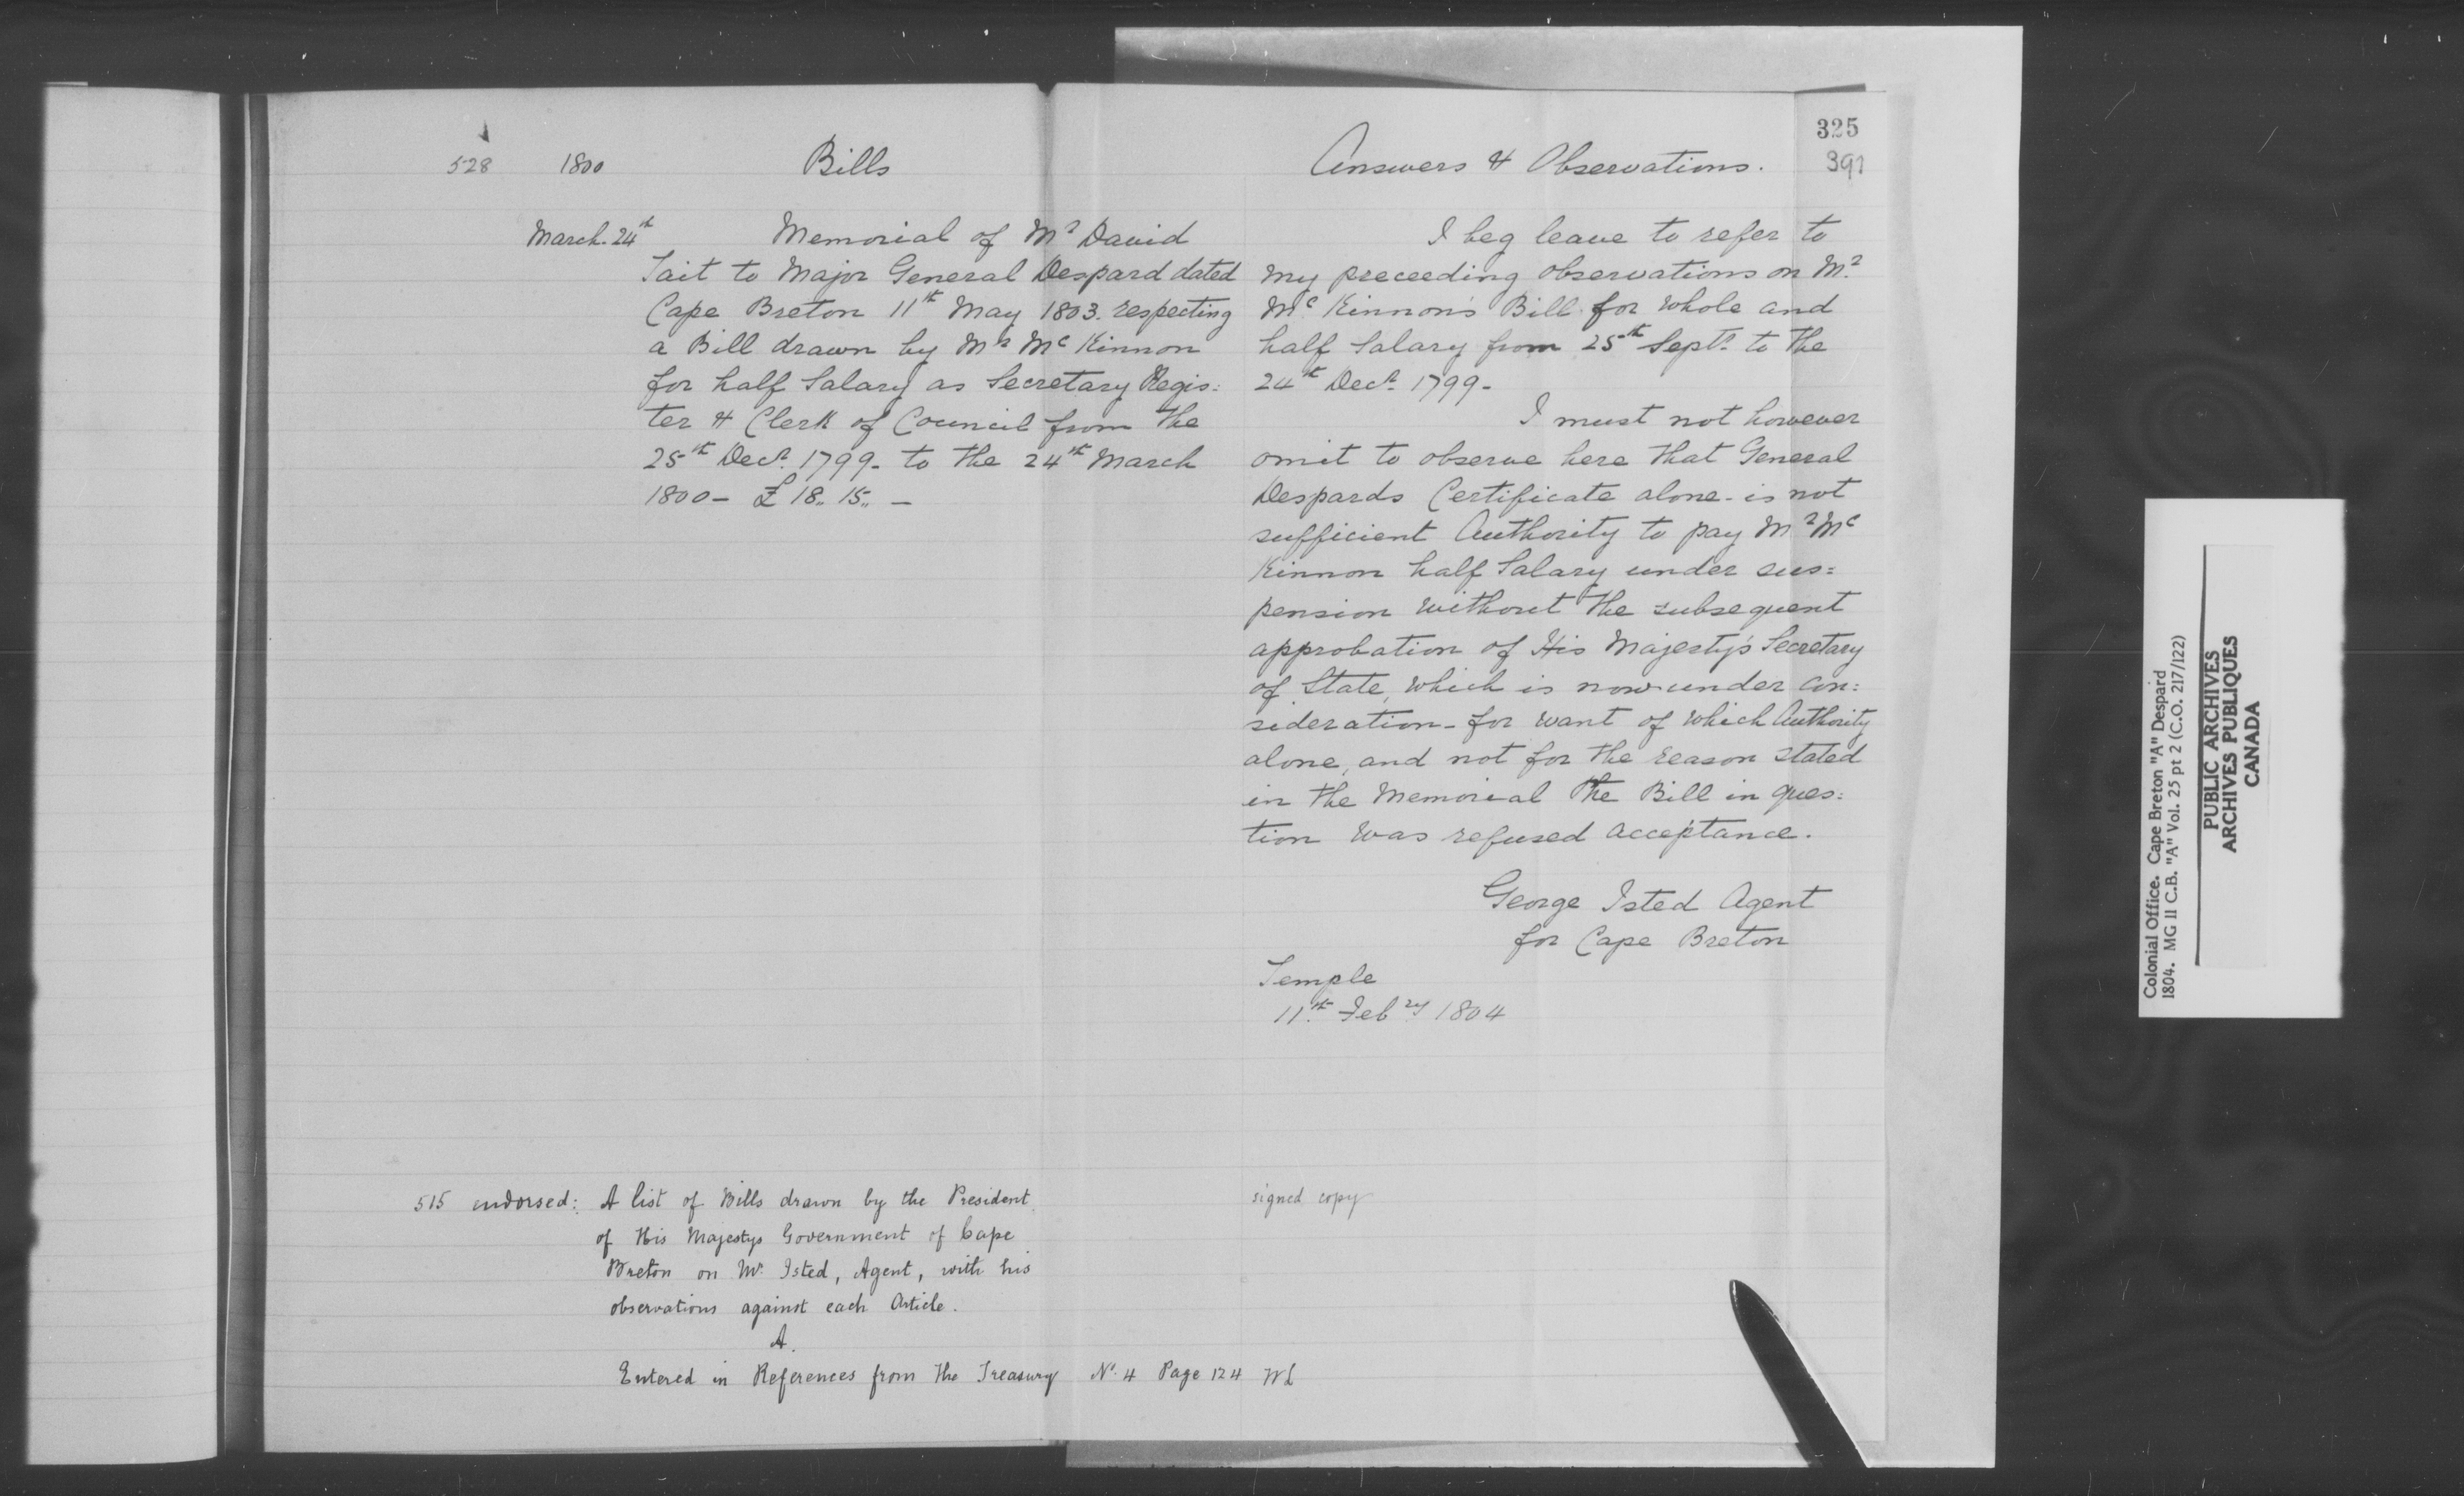 325
528 1800 Bills
March 24th Memorial of Mr David
Tait to Major General Despard dated
Cape Breton 11th May 1803. respecting
a Bill drawn by Mr McKinnon
for half Salary as Secretary Regis:
ter & Clerk of Council from the
25th Decr. 1799 - to the 24th March
1800 - £18,, 15,, -
Answers & Observations. 391
I beg leave to refer to
my preceeding observations on Mr.
McKinnon's Bill for whole and
half Salary from 25th Septr. to the
24th Decr. 1799 -
I must not however
omit to observe here that General
Despards Certificate alone - is not
sufficient Authority to pay Mr Mc
Kinnon half Salary under sus:
pension without the subsequent
approbation of His Majesty's Secretary
of State, which is now under con:
sideration - for want of which Authority
alone, and not for the reason stated
in the Memorial the Bill in ques:
tion was refused acceptance.
George Isted Agent
for Cape Breton
Temple
11th. Febry 1804
515 endorsed: A list of Bills drawn by the President
of His Majestys Government of Cape
Breton on Mr. Isted, Agent, with his
observations against each Article.
A.
Entered in References from the Treasury No. 4 Page 124 WL
signed copy
Colonial Office. Cape Breton "A" Despard
1804. MG 11 C.B. "A" Vol. 25 pt 2 (C.O. 217/122)
PUBLIC ARCHIVES
ARCHIVES PUBLIQUES
CANADA